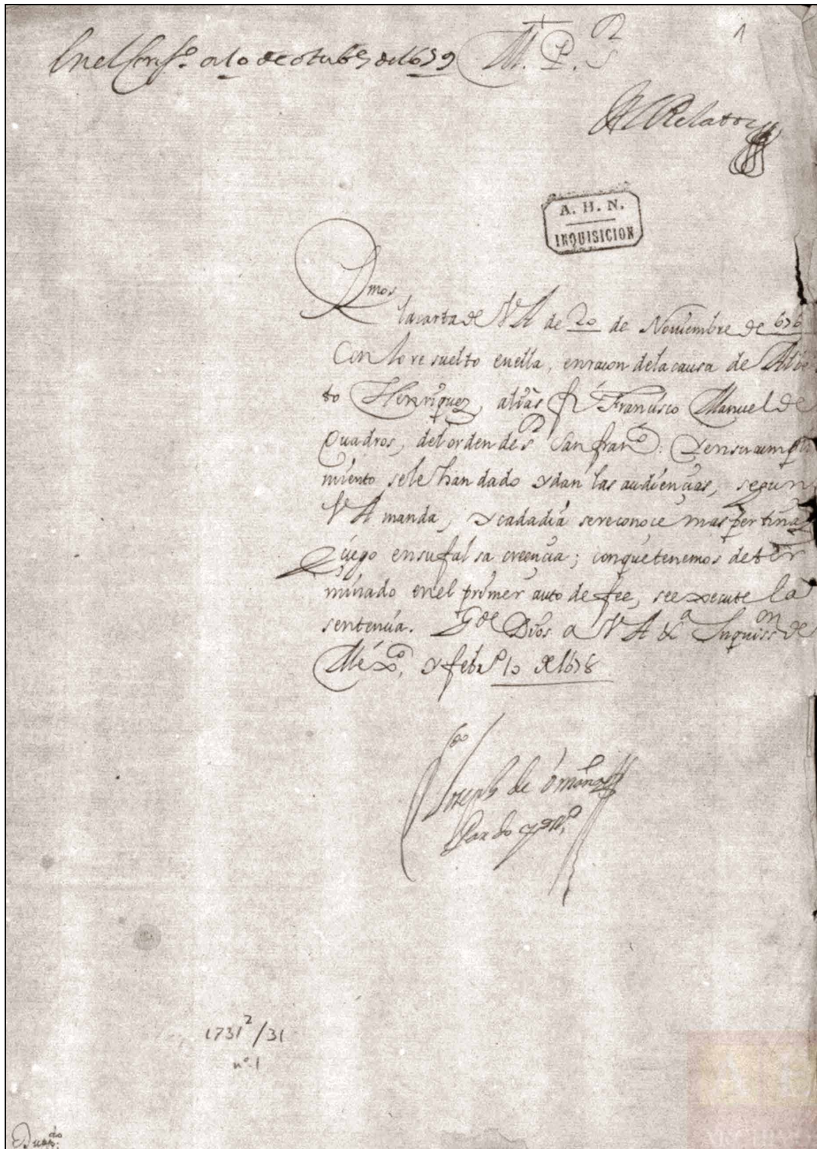 En el Conss.º a 10 de otubre de 1679 M. P. S. 1
Al Relator
A. H. N.
INQUISICION
Rmos
la carta de V A de 20 de Noviembre de 676
Con lo resuelto en ella, en raçon de la causa de Alber
to Henriquez, alias fr Francisco Manuel de
Quadros, del orden de sr San franco. Y en su cumpli
miento se le han dado y dan las audiencias, segun
V A manda, y cada dia se reconoce mas pertinaz
y ciego en su falsa creencia; con que tenemos deter
minado en el primer auto de fee, se execute la
sentencia. Gde Dios a V A &a Inquisson de
Méxco, y febro 10 de 1678
Joseph de Omaña
Pardo y
1731² / 31
nº 1
Dupdo